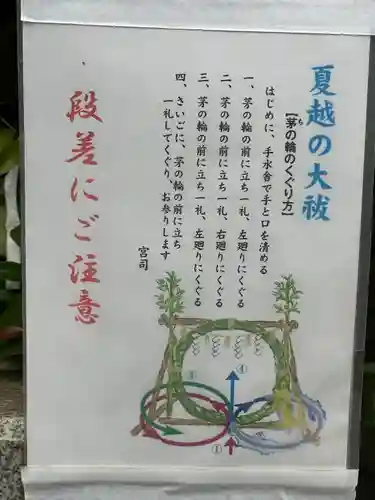 夏越の大祓
【茅の輪のくぐり方】
ち
はじめに、手水舎で手と口を清める
一、茅の輪の前に立ち一礼、左廻りにくぐる
二、茅の輪の前に立ち一礼、右廻りにくぐる
三、茅の輪の前に立ち一礼、左廻りにくぐる
四、さいごに、茅の輪の前に立ち
一礼してくぐり、お参りします
宮司
段差にご注意
④
①